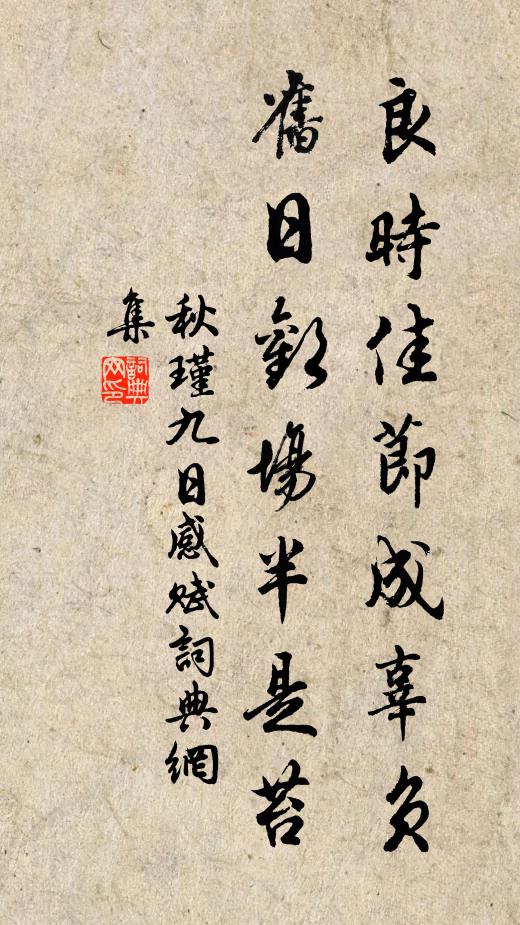 良時佳節成辜負
舊日歡場半是苔
秋瑾九日感賦詞典網
集
詞典
网印